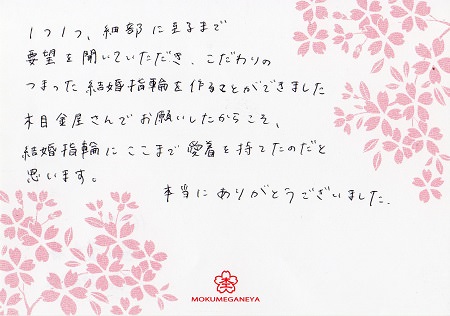 1つ1つ、細部に至るまで
要望を聞いていただき、こだわりの
つまった結婚指輪を作ることができました
木目金屋さんでお願いしたからこそ、
結婚指輪にここまで愛着を持てたのだと
思います。
本当にありがとうございました.
MOKUMEGANEYA